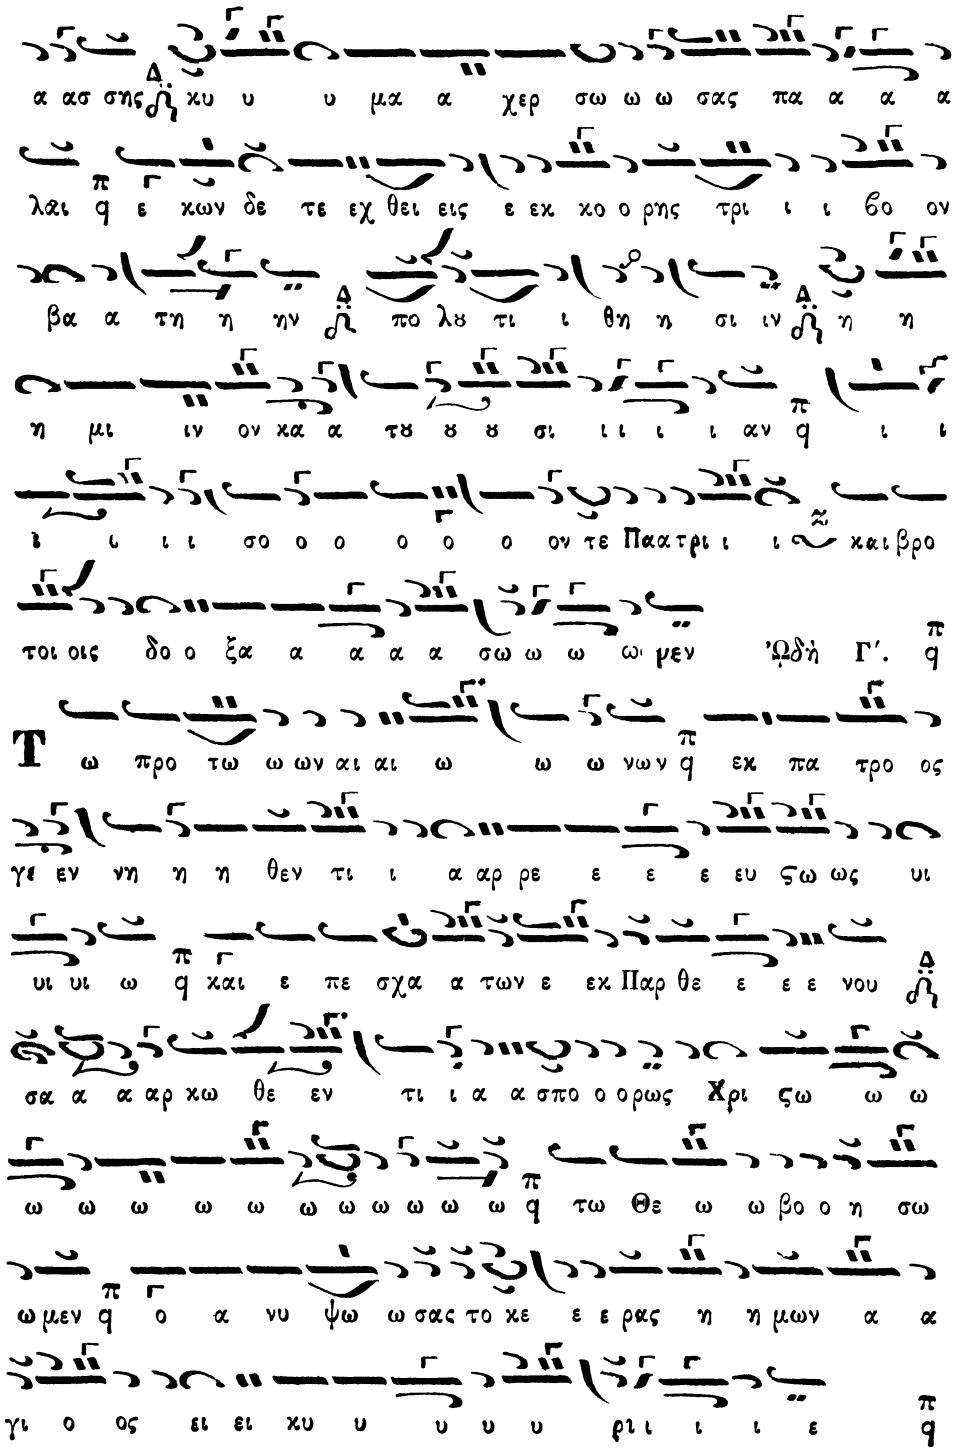 α ας σης Δ κυ υ υ μα α χερ σω ω ω σας πα α α α
λαι π q ε κων δε τε εχ θει εις ε εκ κο ο ρης τρι ι ι βο ον
βα α τη η ην Δ πο λȣ τι ι θη η σι ιν Δ η η
η μι ιν ον κα α τȣ ȣ ȣ σι ι ι ι ι αν π q ι ι
ι ι ι ι σο ο ο ο ο ο ον τε Πα α τρι ι ι και βρο
τοι οις δο ο ξα α α α α σω ω ω ω μεν Ὠδὴ Γʹ. π q
Τ ω προ τω ω ων αι αι ω ω ω νων π q εκ πα τρο ος
γε εν νη η η θεν τι ι α αρ ρε ε ε ε ευ ϛω ως υι
υι υι ω π q και ε πε σχα α των ε εκ Παρ θε ε ε ε νου Δ
σα α α αρ κω θε εν τι ι α α σπο ο ορως Χρι ϛω ω ω
ω ω ω ω ω ω ω ω ω ω ω π q τω Θε ω ω βο ο η σω
ω μεν π q ο α νυ ψω ω σας το κε ε ε ρας η η μων α α
γι ο ος ει ει κυ υ υ υ υ ρι ι ι ι ε π q